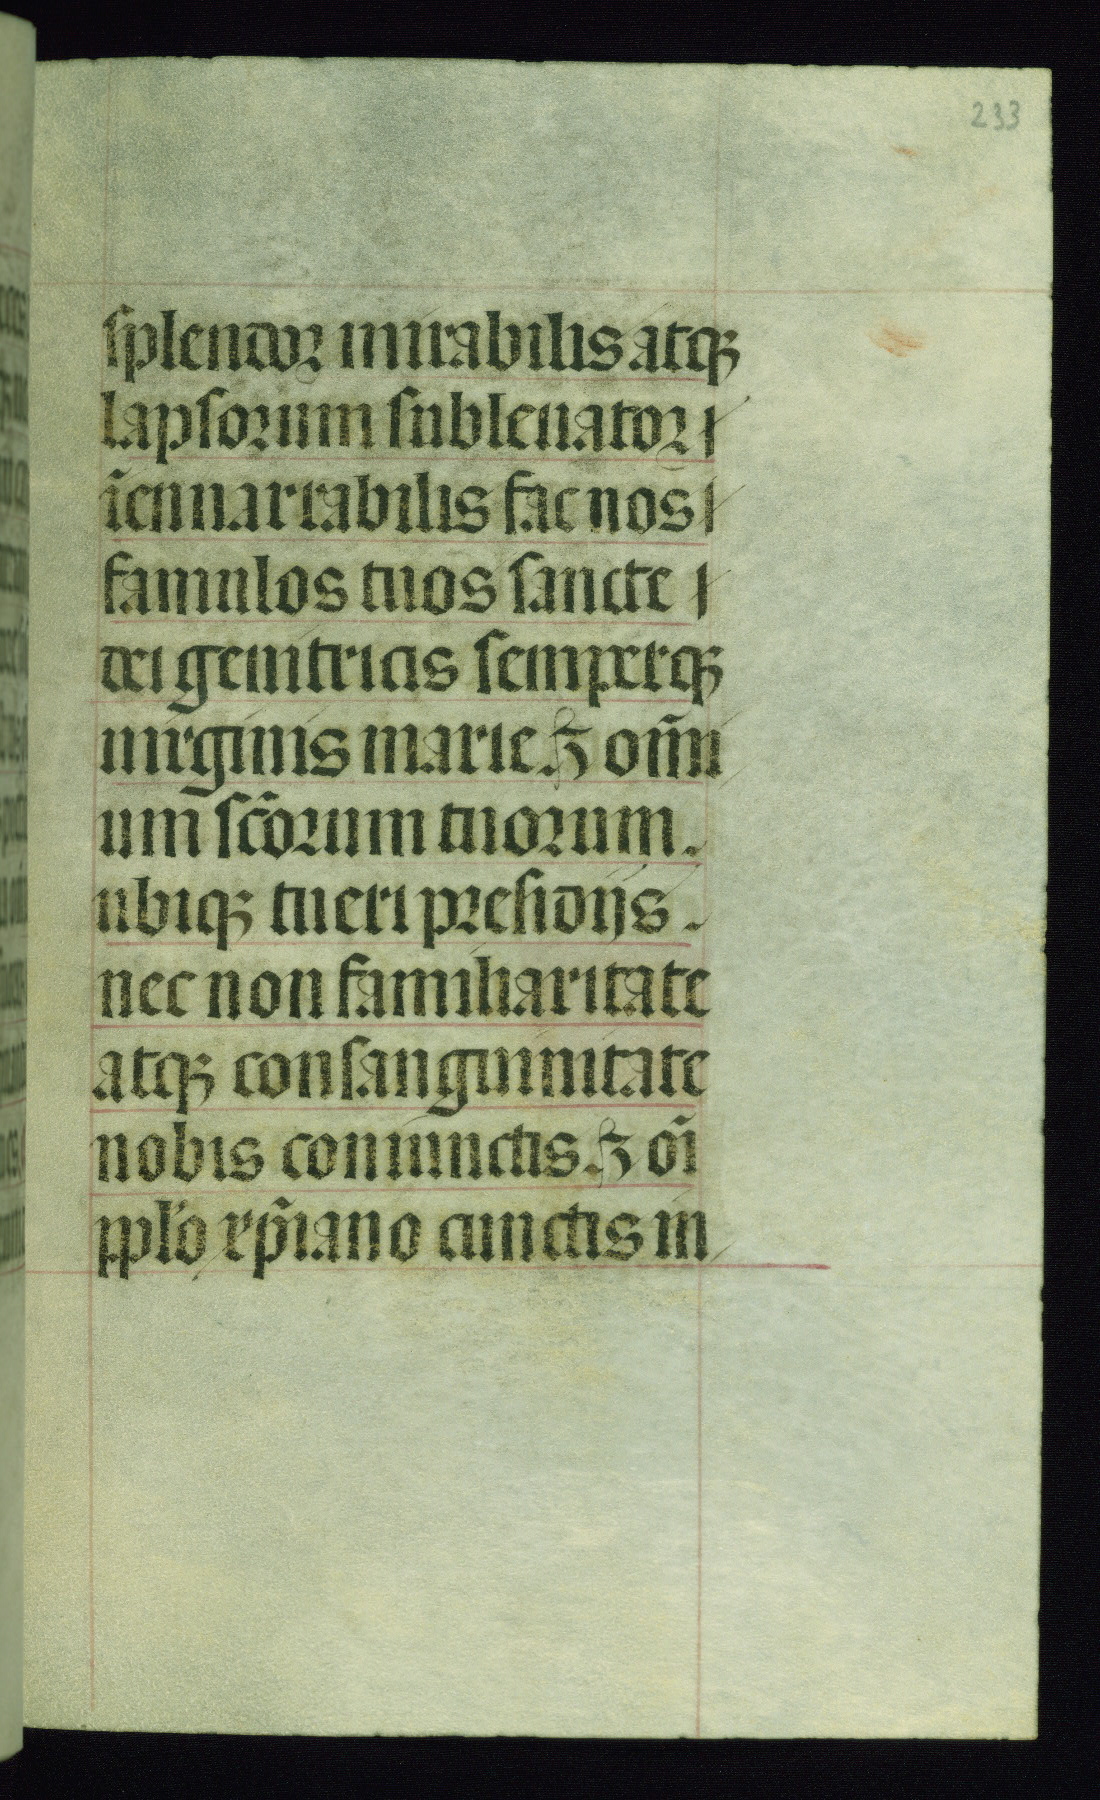 233
splendor mirabilis atqꝫ
lapsorum subleuator
īennarrabilis fac nos
famulos tuos sancte
dei genitricis semperqꝫ
uirginis marie. ⁊ om̄i
um sc̄orum tuorum.
ubiqꝫ tueri presidijs.
nec non familiaritate
atqꝫ consanguinitate
nobis coniunctis. ⁊ oī
pplō xp̄iano cunctis in